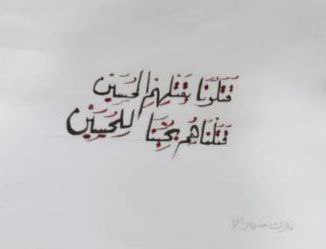 قَتَلُونَا بِقَتْلِهِمُ الحُسَيْن
قَتَلْنَاهُم بِحُبِّنَا لِلحُسَيْن